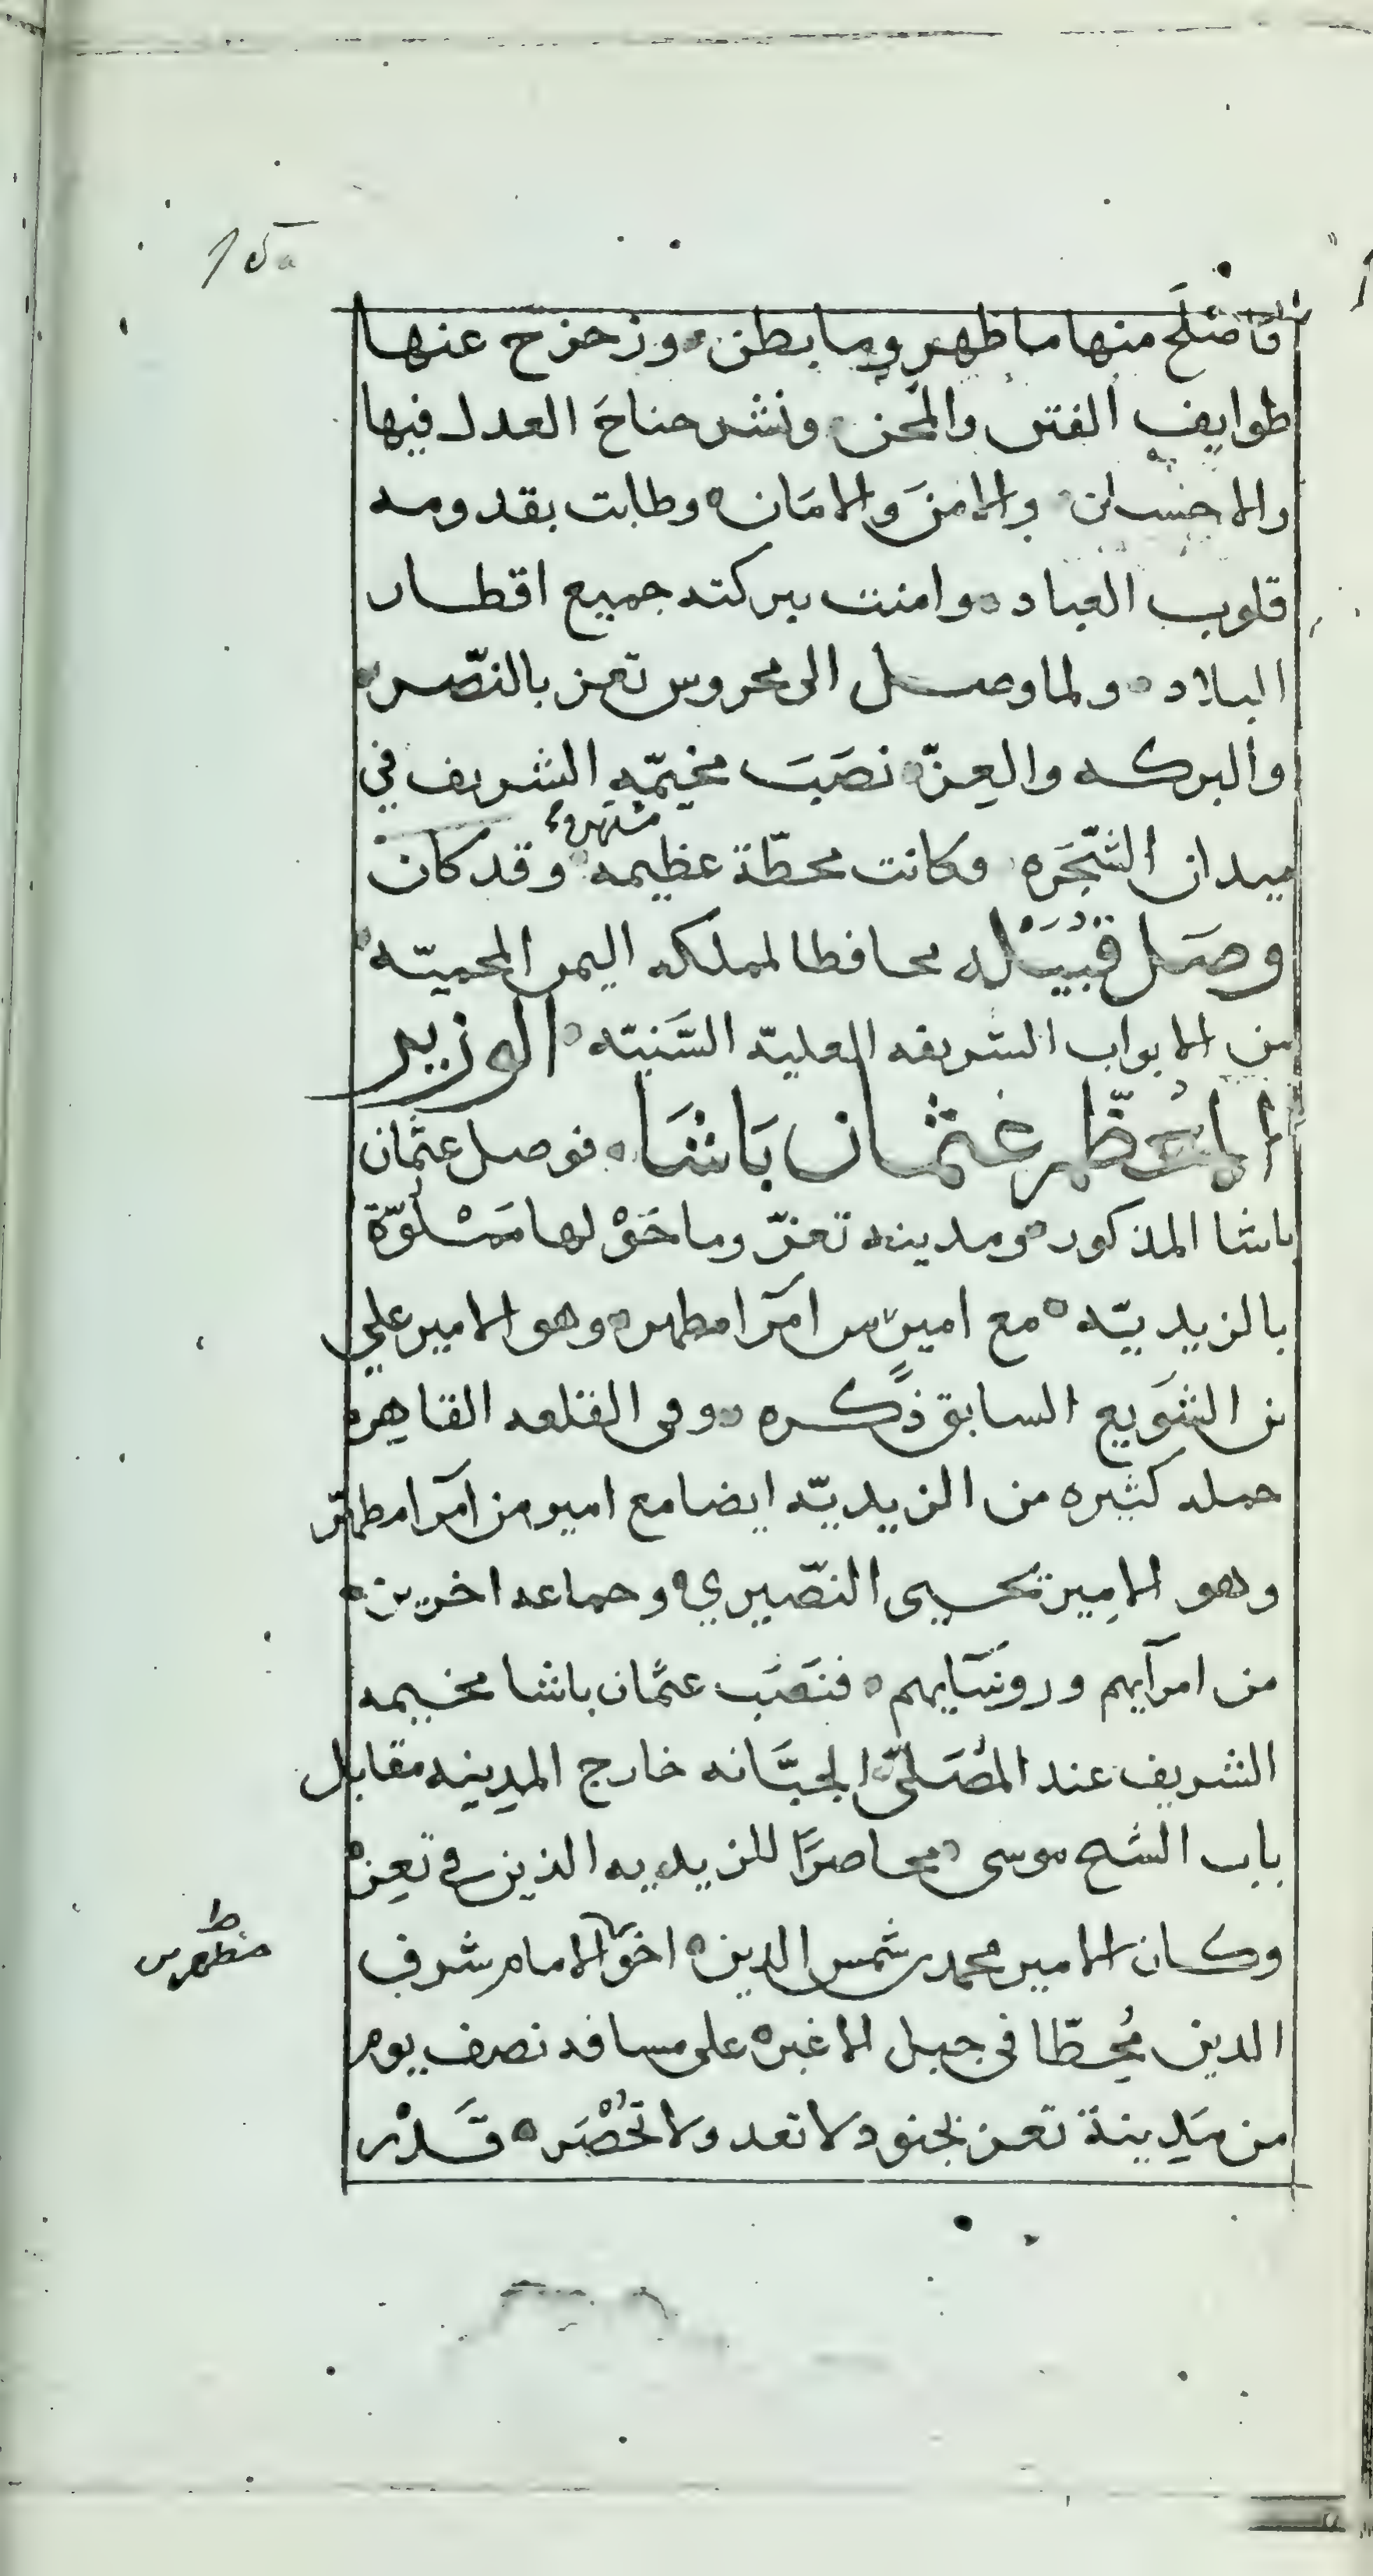 فاصلح منها ما ظهر وما بطن وزحزح عنها
طوايف الفتن والمحن ونشر جناحَ العدل فيها
والاحسان والامنَ والامَان وطابت بقدومه
قلوب العباد وامنت ببركته جميع اقطار
البلاد ولما وصل الى محروس تعز بالنّصر
والبركه والعِزّه نصَبَ مخيمّه الشريف في
ميدان الشّجَره وكانت محطّة عظيمه مشهوره وقد كان
وصَل قَبْلَه محافظا لمملكه اليمن المحميّه
من الابواب الشريفه العليّه السَّنيّه الوزير
المُعظّم عثمان بَاشَا فوصل عثمان
باشا المذكور ومدينه تعزّ وما حَوْلها مَمْلُوّة
بالزيديّه مع امير من امَرا مطهر وهو الامير علي
بن الشوَيع السابق ذكره وفي القلعه القاهره
جمله كثيره من الزيديّه ايضا مع امير من امَرا مطهّر
وهو الامِير يحيى النّصيري وجماعه اخرين
من امرآيهم وروسَآيهم فنَصَب عثمان باشا مخيمه
الشريف عند المُصَلّى الجبَّانه خارج المدينه مقابل
باب الشيخ موسى محاصرًا للزيديه الذين في تعِز
وكان الامير محمد بن شمس الدين اخو الامام شرف
الدين مُحِطّا في جبل الاغبر على مسافه نصف يوم
من مَدِينة تعز بجنود لا تعد ولا تُحْصَر قَدْر